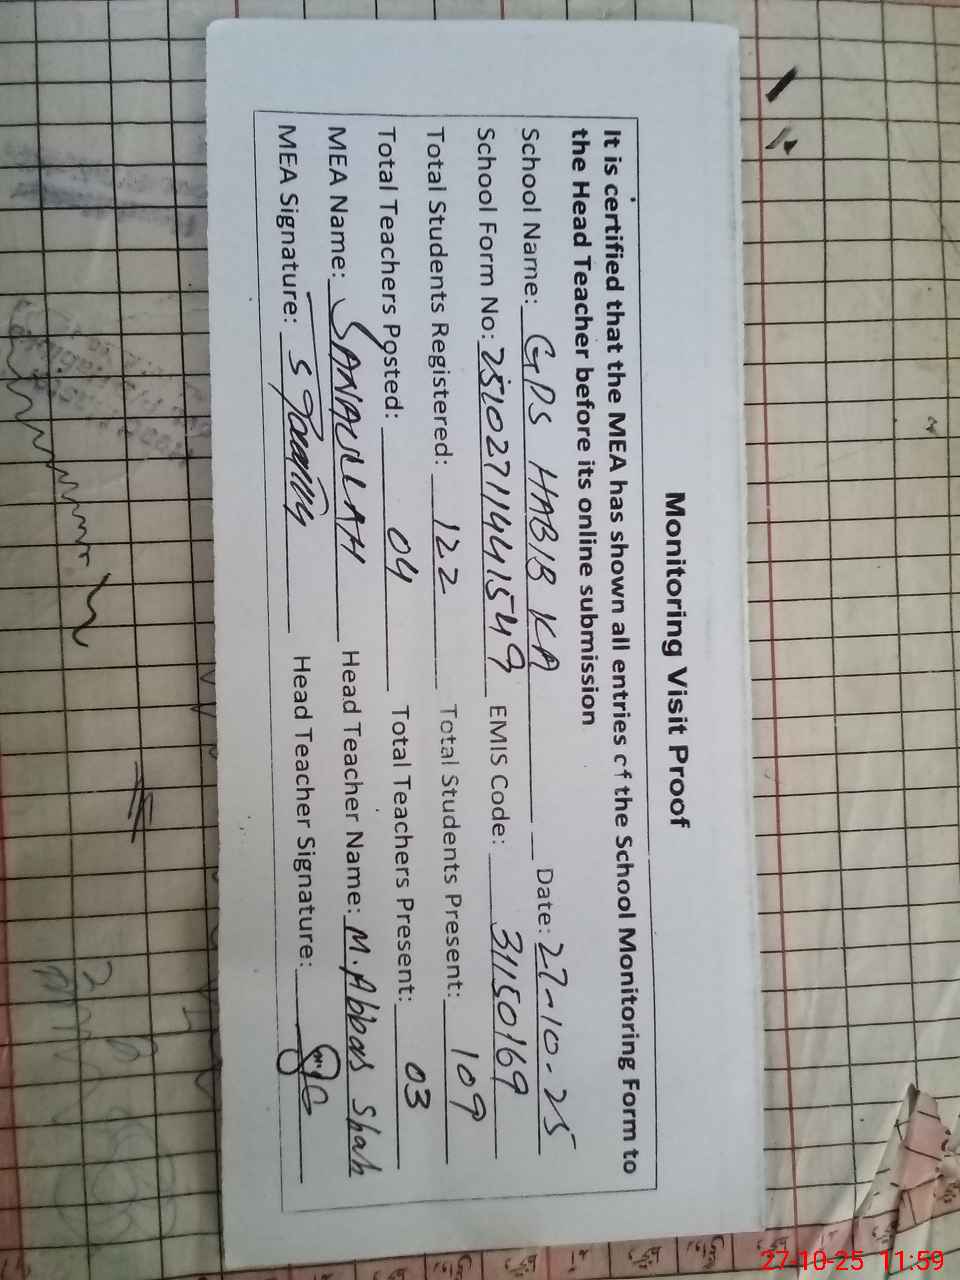 Monitoring Visit Proof
It is certified that the MEA has shown all entries of the School Monitoring Form to
the Head Teacher before its online submission
School Name: GPS HABIB KA Date: 27-10-25
School Form No: 25102711441549 EMIS Code: 31150169
Total Students Registered: 122 Total Students Present: 109
Total Teachers Posted: 04 Total Teachers Present: 03
MEA Name: SANAULLAH Head Teacher Name: M. Abbas Shah
MEA Signature: Head Teacher Signature:
27-10-25 11:59